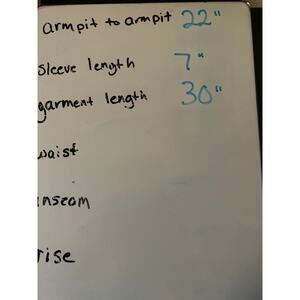 armpit to armpit 22"
sleeve length 7"
garment length 30"
waist
inseam
rise